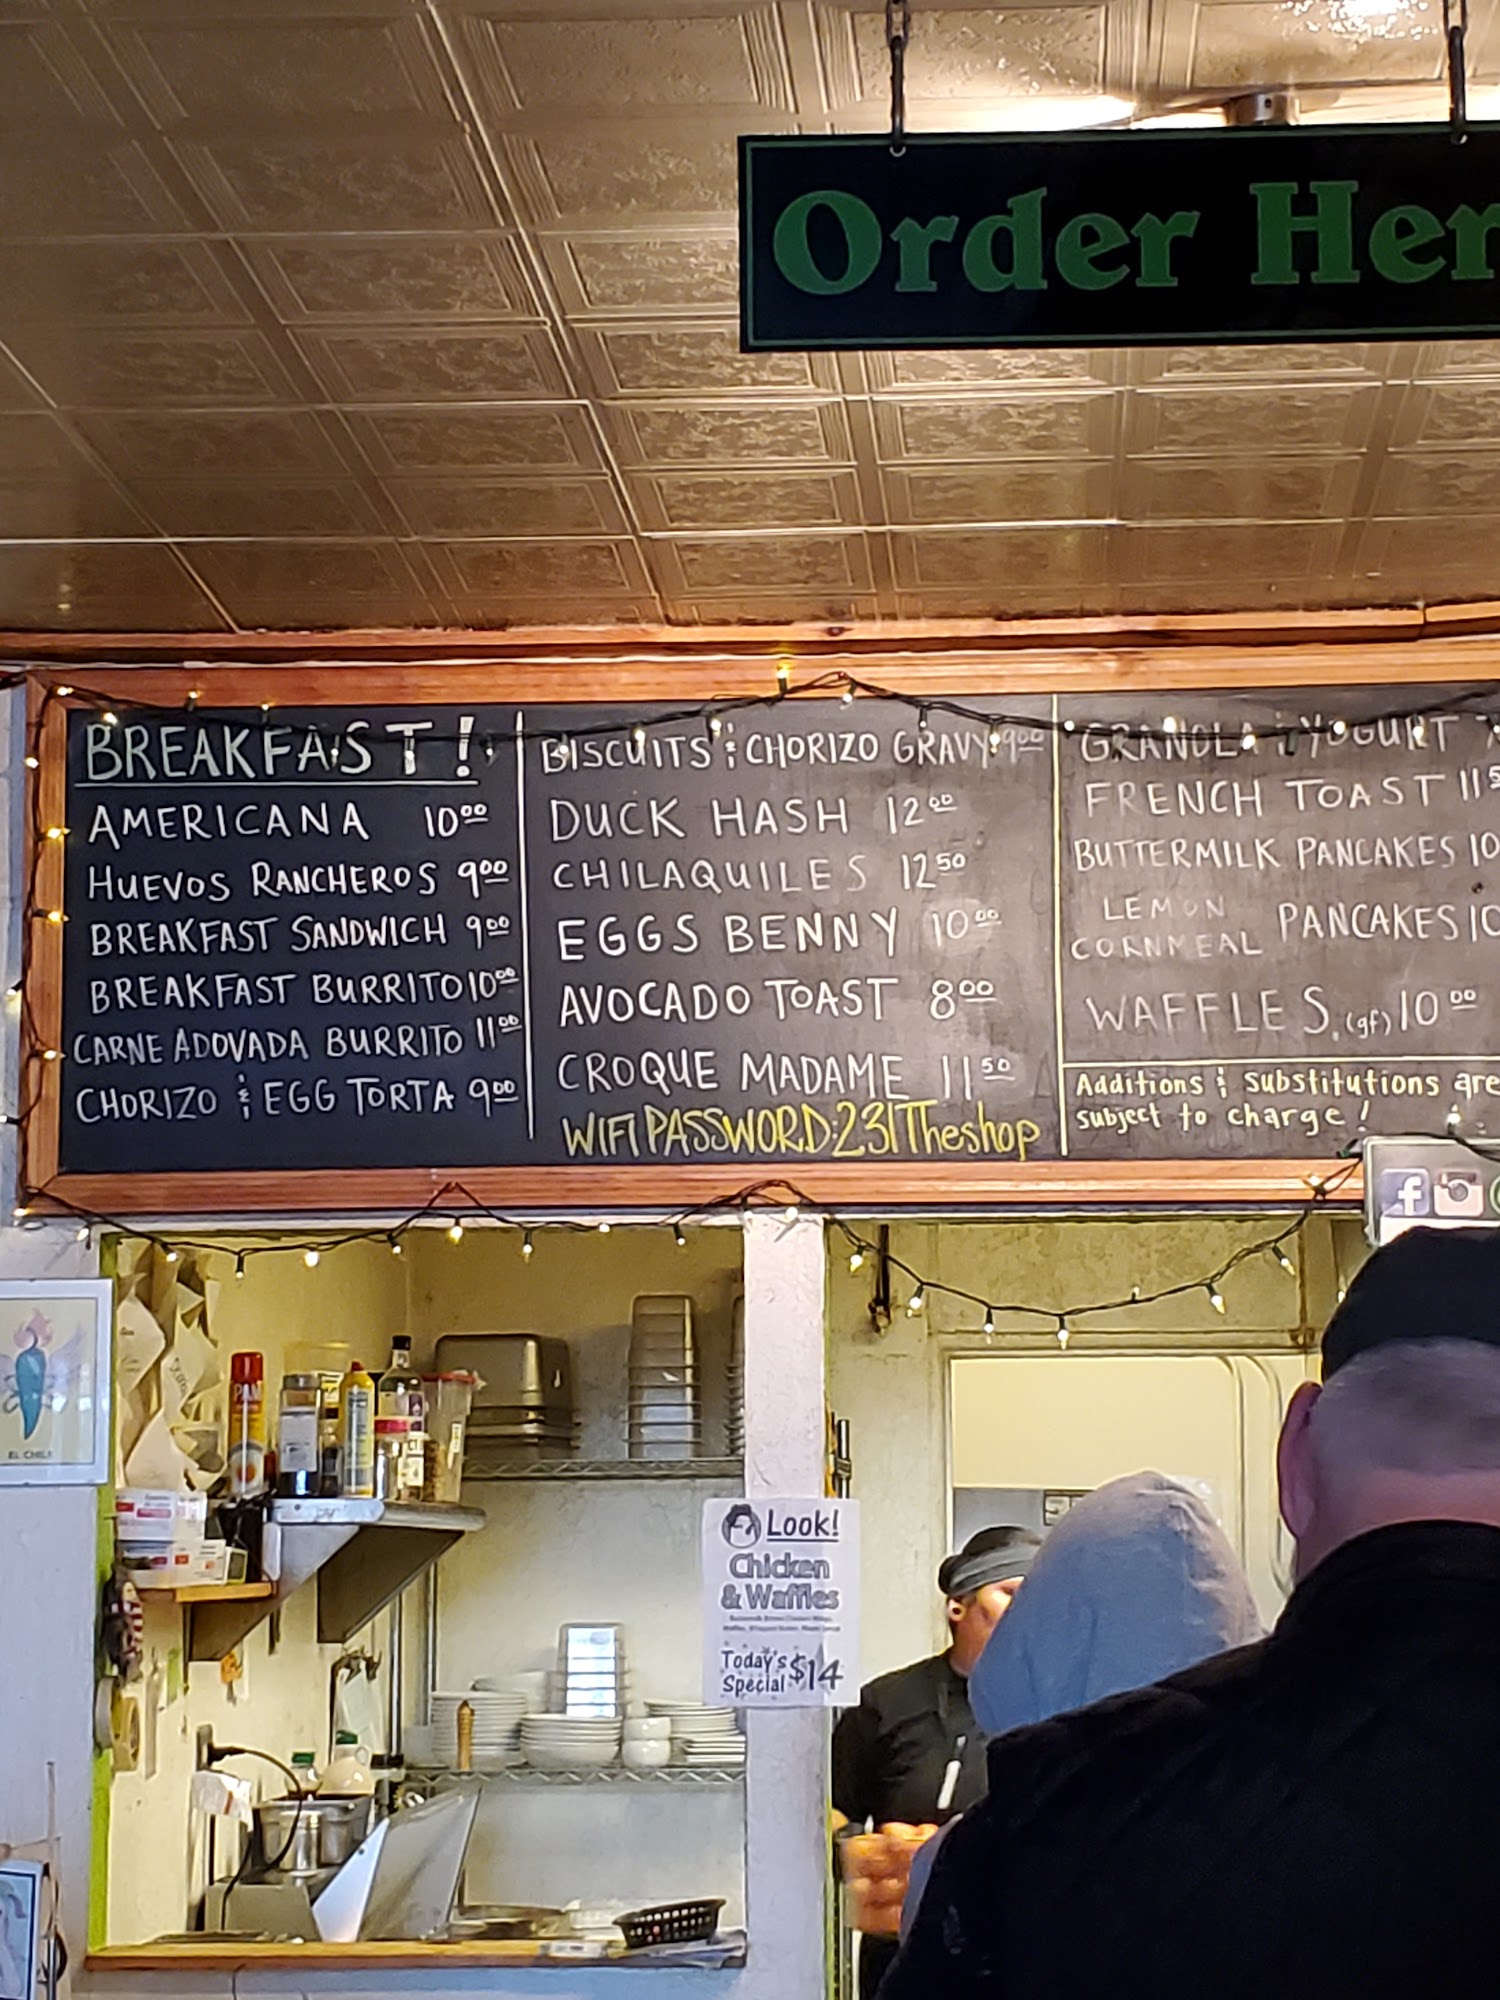 Order Her
BREAKFAST!
AMERICANA 10⁰⁰
HUEVOS RANCHEROS 9⁰⁰
BREAKFAST SANDWICH 9⁰⁰
BREAKFAST BURRITO 10⁰⁰
CARNE ADOVADA BURRITO 11⁰⁰
CHORIZO & EGG TORTA 9⁰⁰
BISCUITS & CHORIZO GRAVY 9⁰⁰
DUCK HASH 12⁰⁰
CHILAQUILES 12⁵⁰
EGGS BENNY 10⁰⁰
AVOCADO TOAST 8⁰⁰
CROQUE MADAME 11⁵⁰
WIFI PASSWORD:231Theshop
GRANOLA & YOGURT
FRENCH TOAST 11⁵
BUTTERMILK PANCAKES 10
LEMON CORNMEAL PANCAKES 10
WAFFLES (gf) 10⁰⁰
Additions & substitutions are
subject to charge!
EL CHILE
PAM
Look!
Chicken
& Waffles
Today's
Special $14